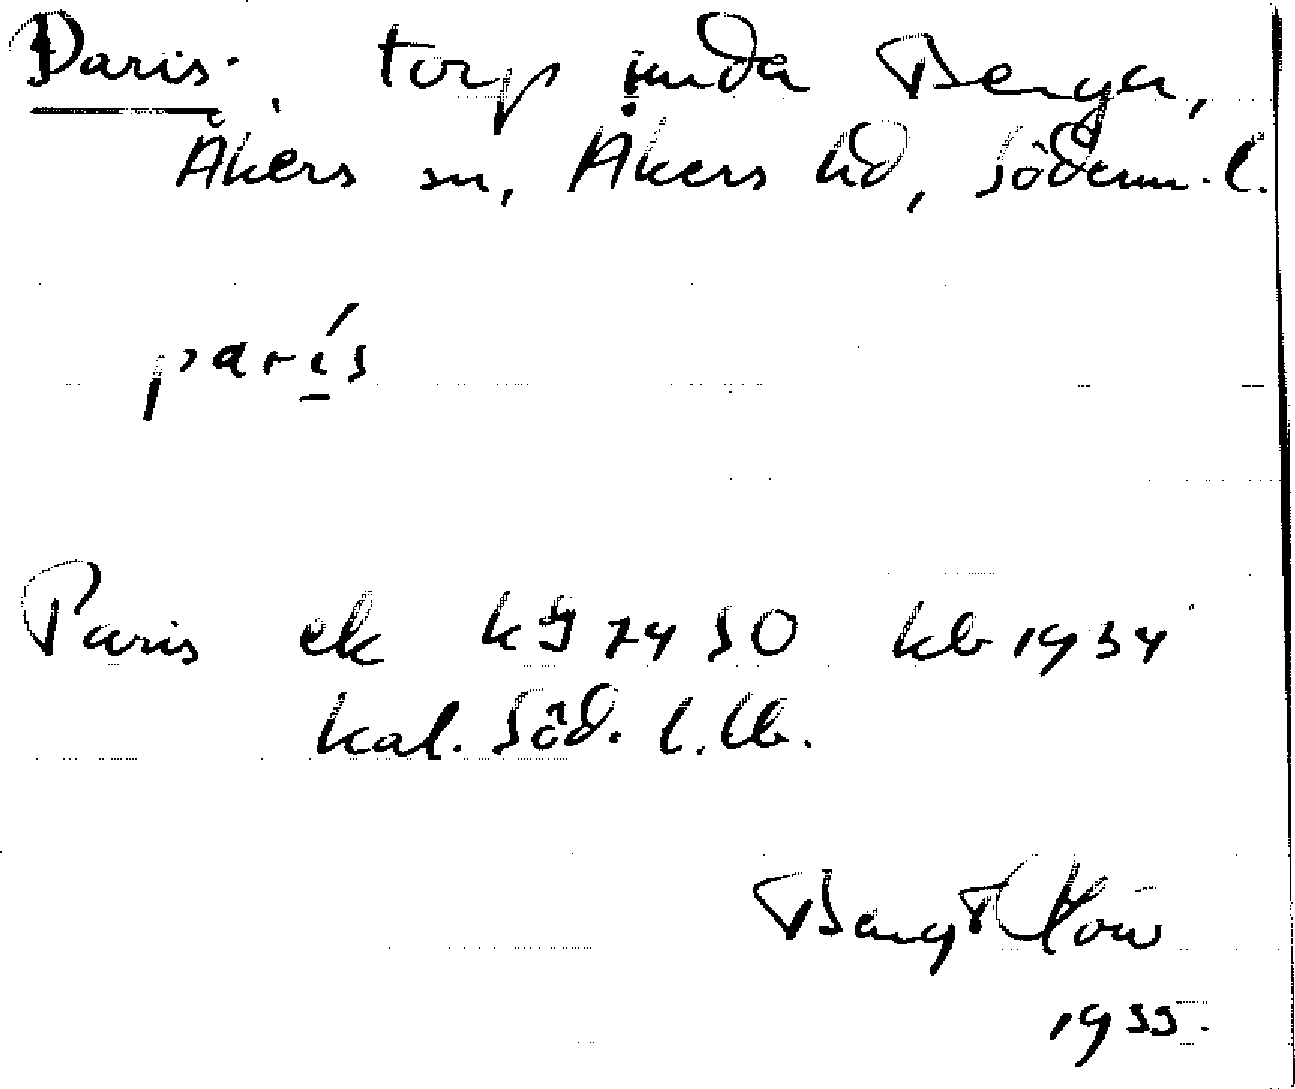 Paris. torp unda Berga,
Åkers sn, Åkers hd, Söderm. l.
parís
Paris ek kb 1934
kal. Söd. l. lb.
Bengt
1955.